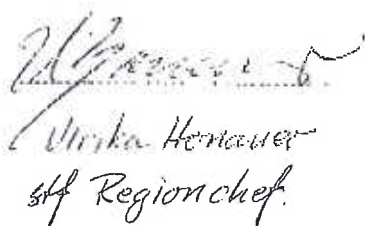 Ulrika Henauer
stf Regionchef.